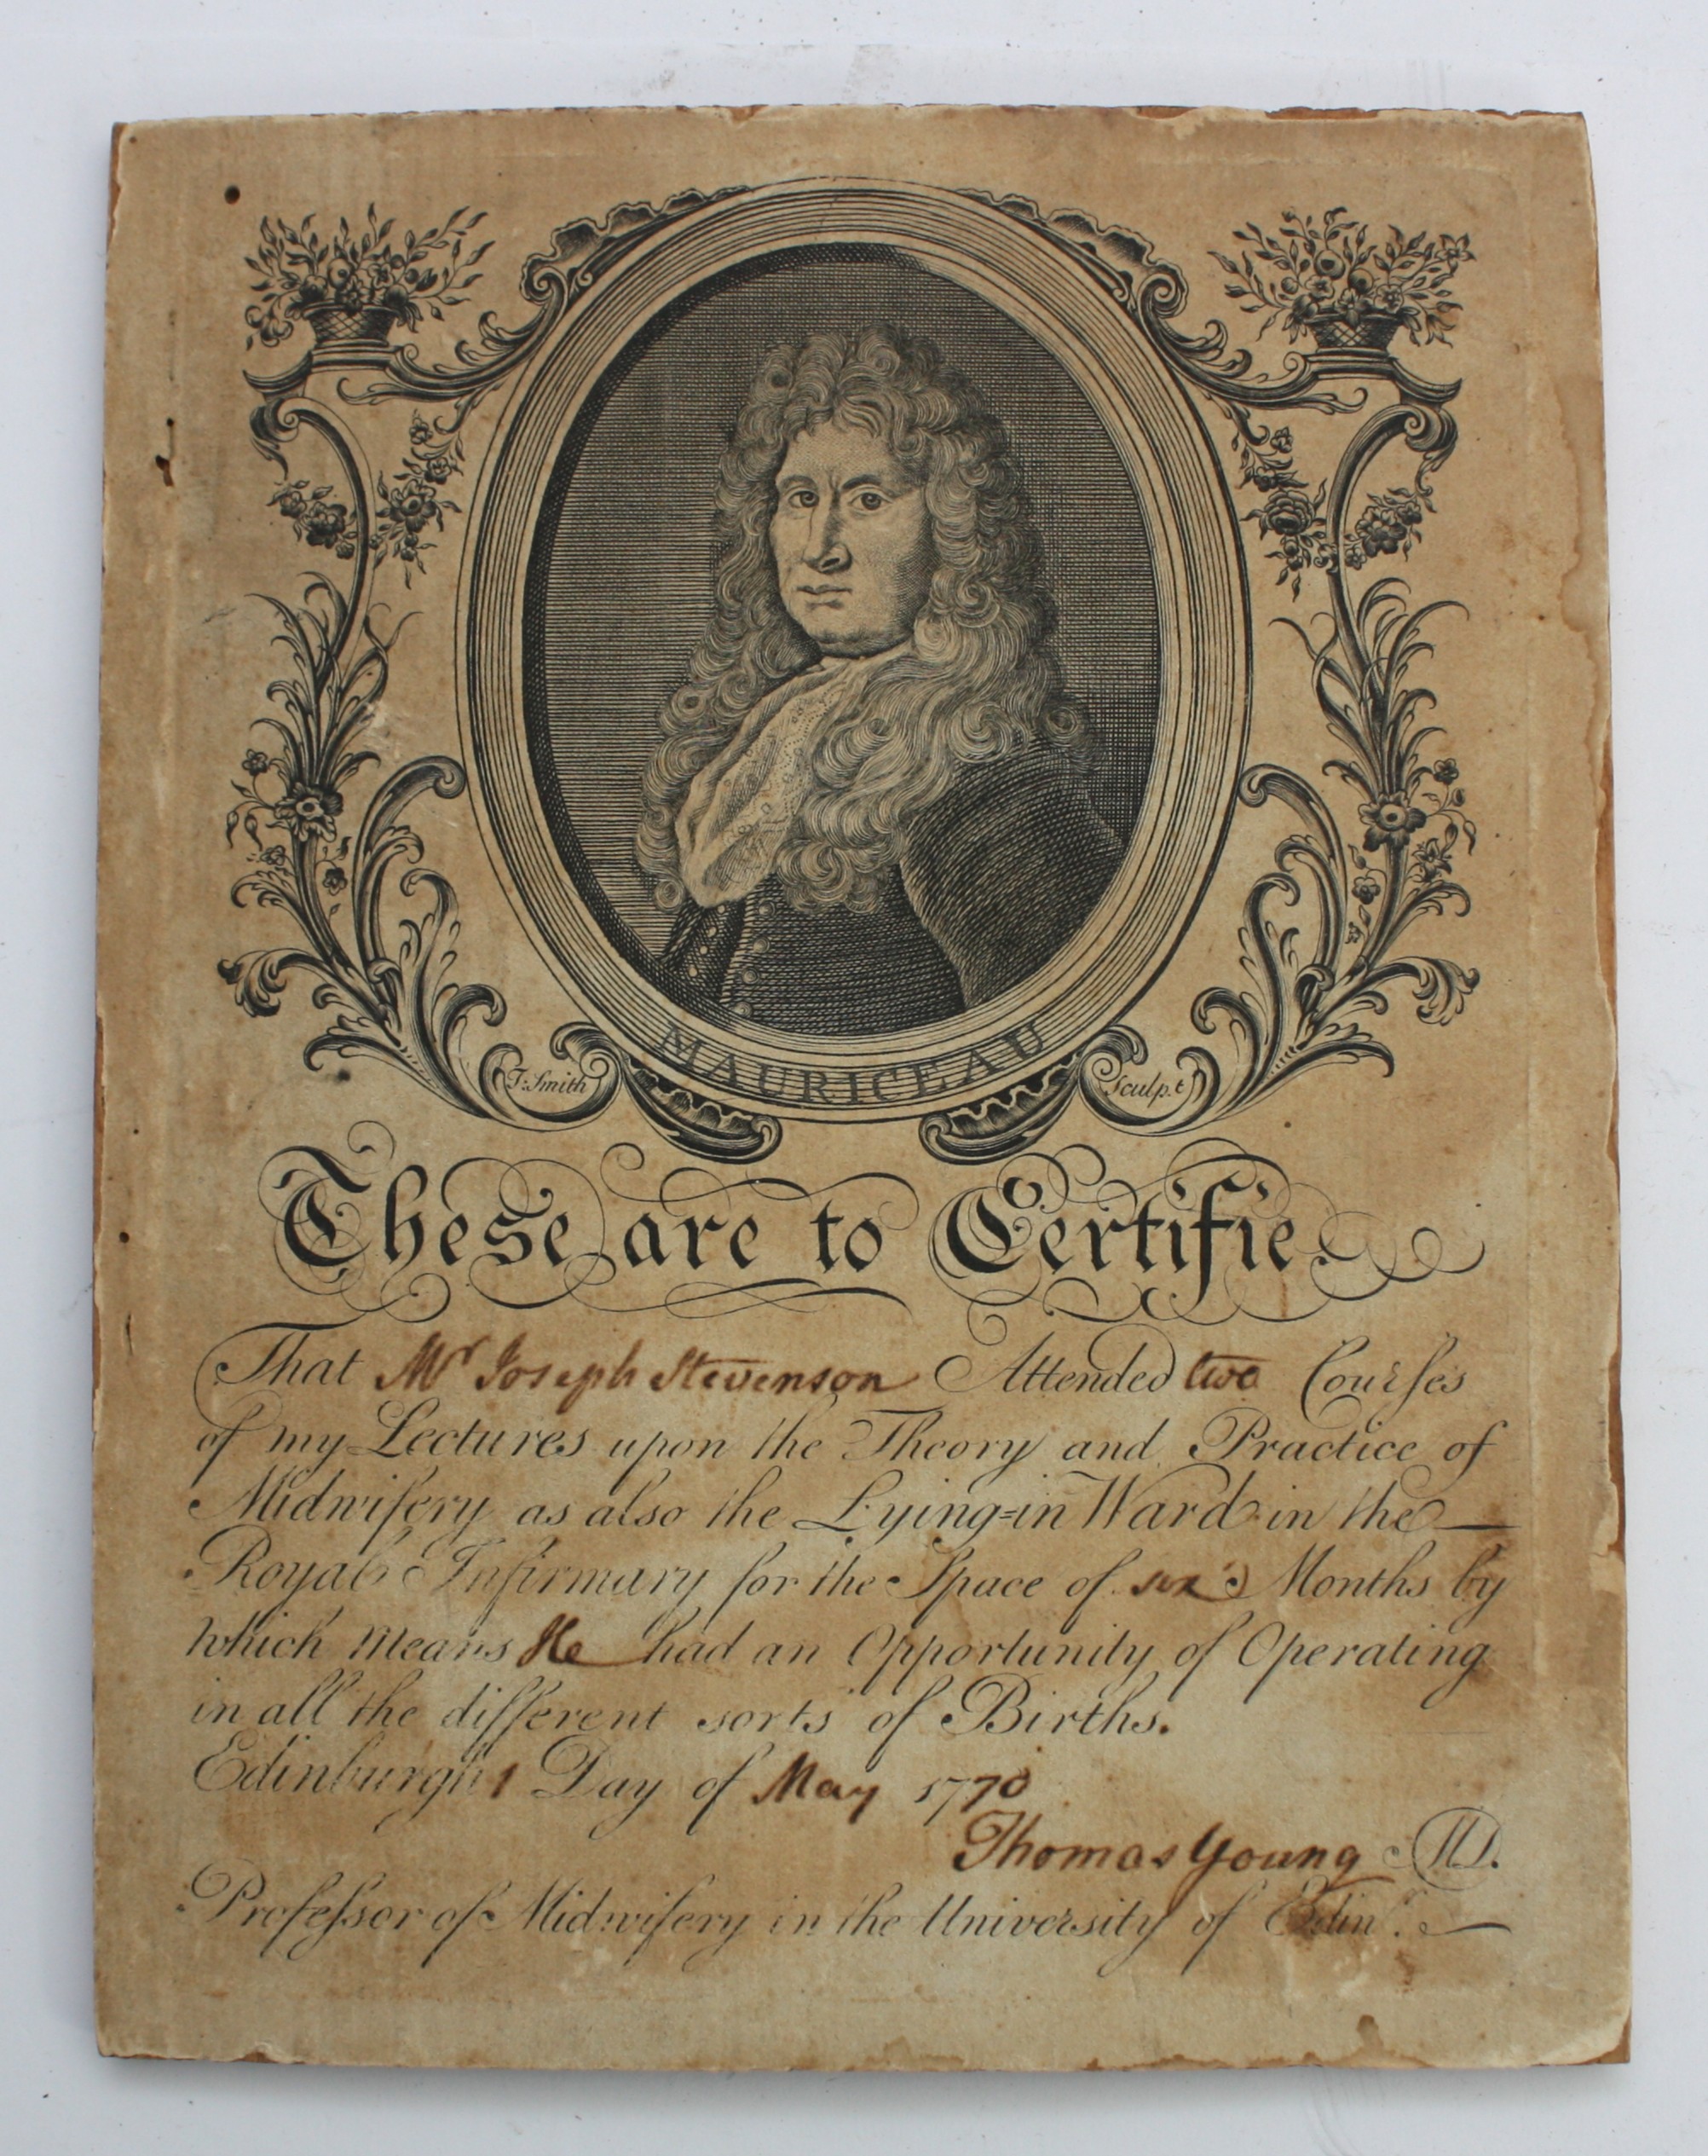 MAURICEAU
T: Smith Sculp.t
These are to Certifie
That Mr Joseph Stevenson Attended two Courses
of my Lectures upon the Theory and Practice of
Midwifery as also the Lying=in Ward in the
Royal Infirmary for the Space of six Months by
which Means He had an Opportunity of Operating
in all the different sorts of Births.
Edinburgh 1 Day of May 1770
Thomas Young MD.
Professor of Midwifery in the University of Edinr.